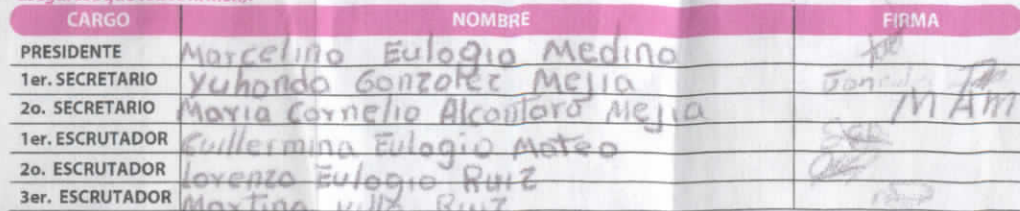 CARGO NOMBRE FIRMA
PRESIDENTE Marcelino Eulogio Medino
1er. SECRETARIO Yuhondo Gonzolez Mejia
2o. SECRETARIO Maria Cornelio Alcontoro Mejia MAM
1er. ESCRUTADOR Guillermina Eulogio Moteo
2o. ESCRUTADOR Lorenzo Eulogio Ruiz
3er. ESCRUTADOR Martina Ruiz